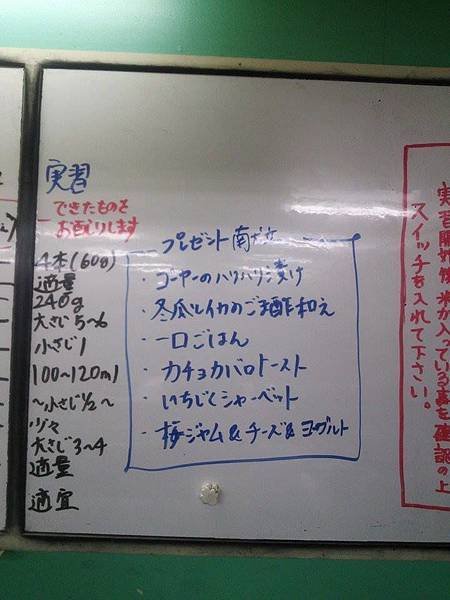 実習
できたものを
お配りします
4本(60g)
適量
240g
大さじ5〜6
小さじ1
100〜120ml
〜小さじ½〜
少々
大さじ3〜4
適量
適宜
プレゼント南
・ゴーヤーのハリハリ漬け
・冬瓜とイカのごま酢和え
・一口ごはん
・カチョカバロトースト
・いちじくシャーベット
・梅ジャム&チーズ&ヨーグルト
実習開始後 米が入っている事を確認の上
スイッチを入れて下さい。